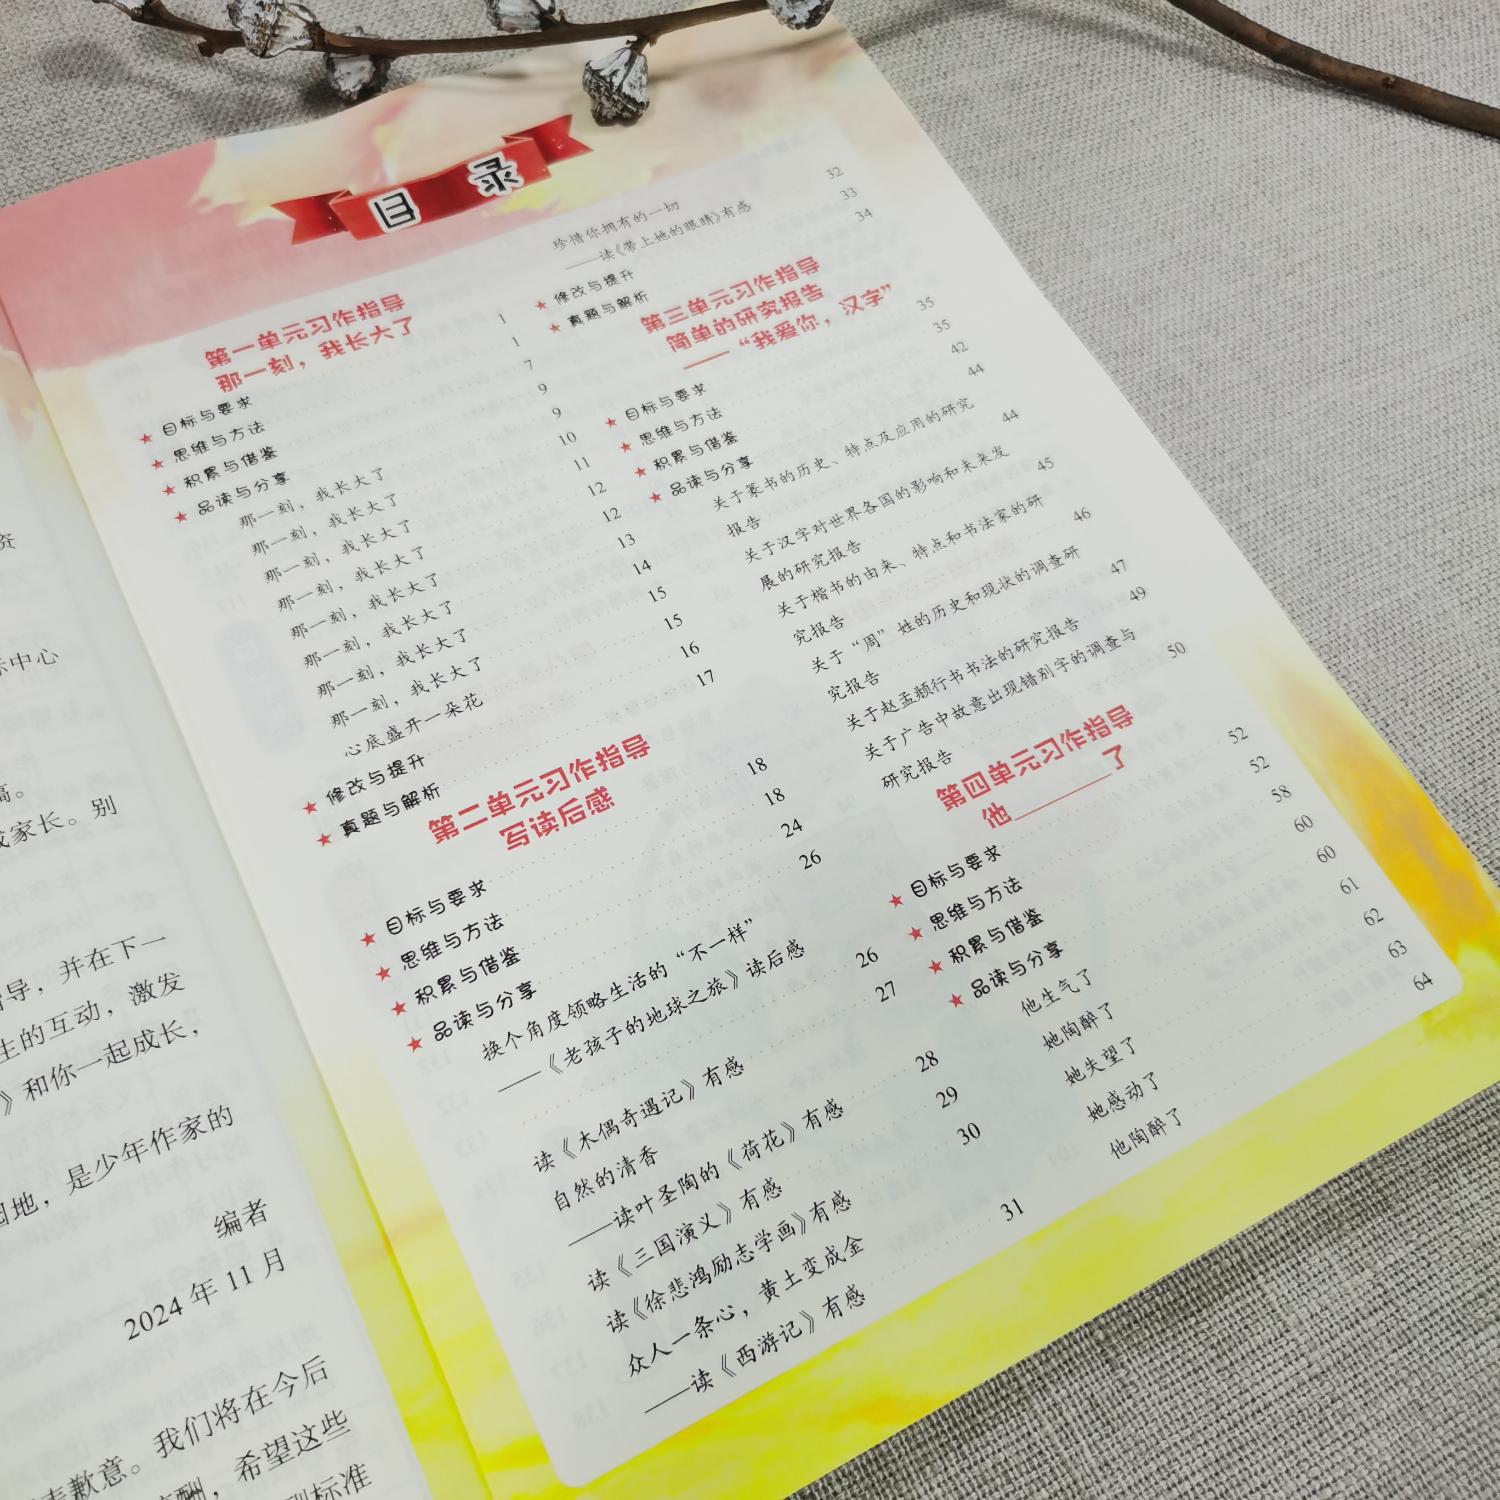 资
示中心
高。
成家长。别
指导，并在下一
生的互动，激发
》和你一起成长，
园地，是少年作家的
编者
2024 年 11 月
表歉意。我们将在今后
酬，希望这些
标准
目 录
第一单元习作指导
那一刻，我长大了 1
★ 目标与要求 1
★ 思维与方法 7
★ 积累与借鉴 9
★ 品读与分享 9
那一刻，我长大了 10
那一刻，我长大了 11
那一刻，我长大了 12
那一刻，我长大了 12
那一刻，我长大了 13
那一刻，我长大了 14
那一刻，我长大了 15
那一刻，我长大了 15
心底盛开一朵花 16
★ 修改与提升 17
★ 真题与解析
第二单元习作指导
写读后感 18
★ 目标与要求 18
★ 思维与方法 24
★ 积累与借鉴 26
★ 品读与分享
换个角度领略生活的“不一样”
——《老孩子的地球之旅》读后感 26
27
读《木偶奇遇记》有感
自然的清香
——读叶圣陶的《荷花》有感 28
读《三国演义》有感 29
读《徐悲鸿励志学画》有感 30
众人一条心，黄土变成金
——读《西游记》有感 31
珍惜你拥有的一切
——读《带上她的眼睛》有感 32
★ 修改与提升 33
★ 真题与解析 34
第三单元习作指导
简单的研究报告
——“我爱你，汉字” 35
★ 目标与要求 35
★ 思维与方法 42
★ 积累与借鉴 44
★ 品读与分享
关于篆书的历史、特点及应用的研究
报告 44
关于汉字对世界各国的影响和未来发
展的研究报告 45
关于楷书的由来、特点和书法家的研
究报告 46
关于“周”姓的历史和现状的调查研
究报告 47
关于赵孟頫行书书法的研究报告 49
关于广告中故意出现错别字的调查与
研究报告 50
第四单元习作指导
他______了 52
★ 目标与要求 52
★ 思维与方法 58
★ 积累与借鉴 60
★ 品读与分享 60
他生气了 61
她陶醉了 62
她失望了 63
她感动了 64
他陶醉了